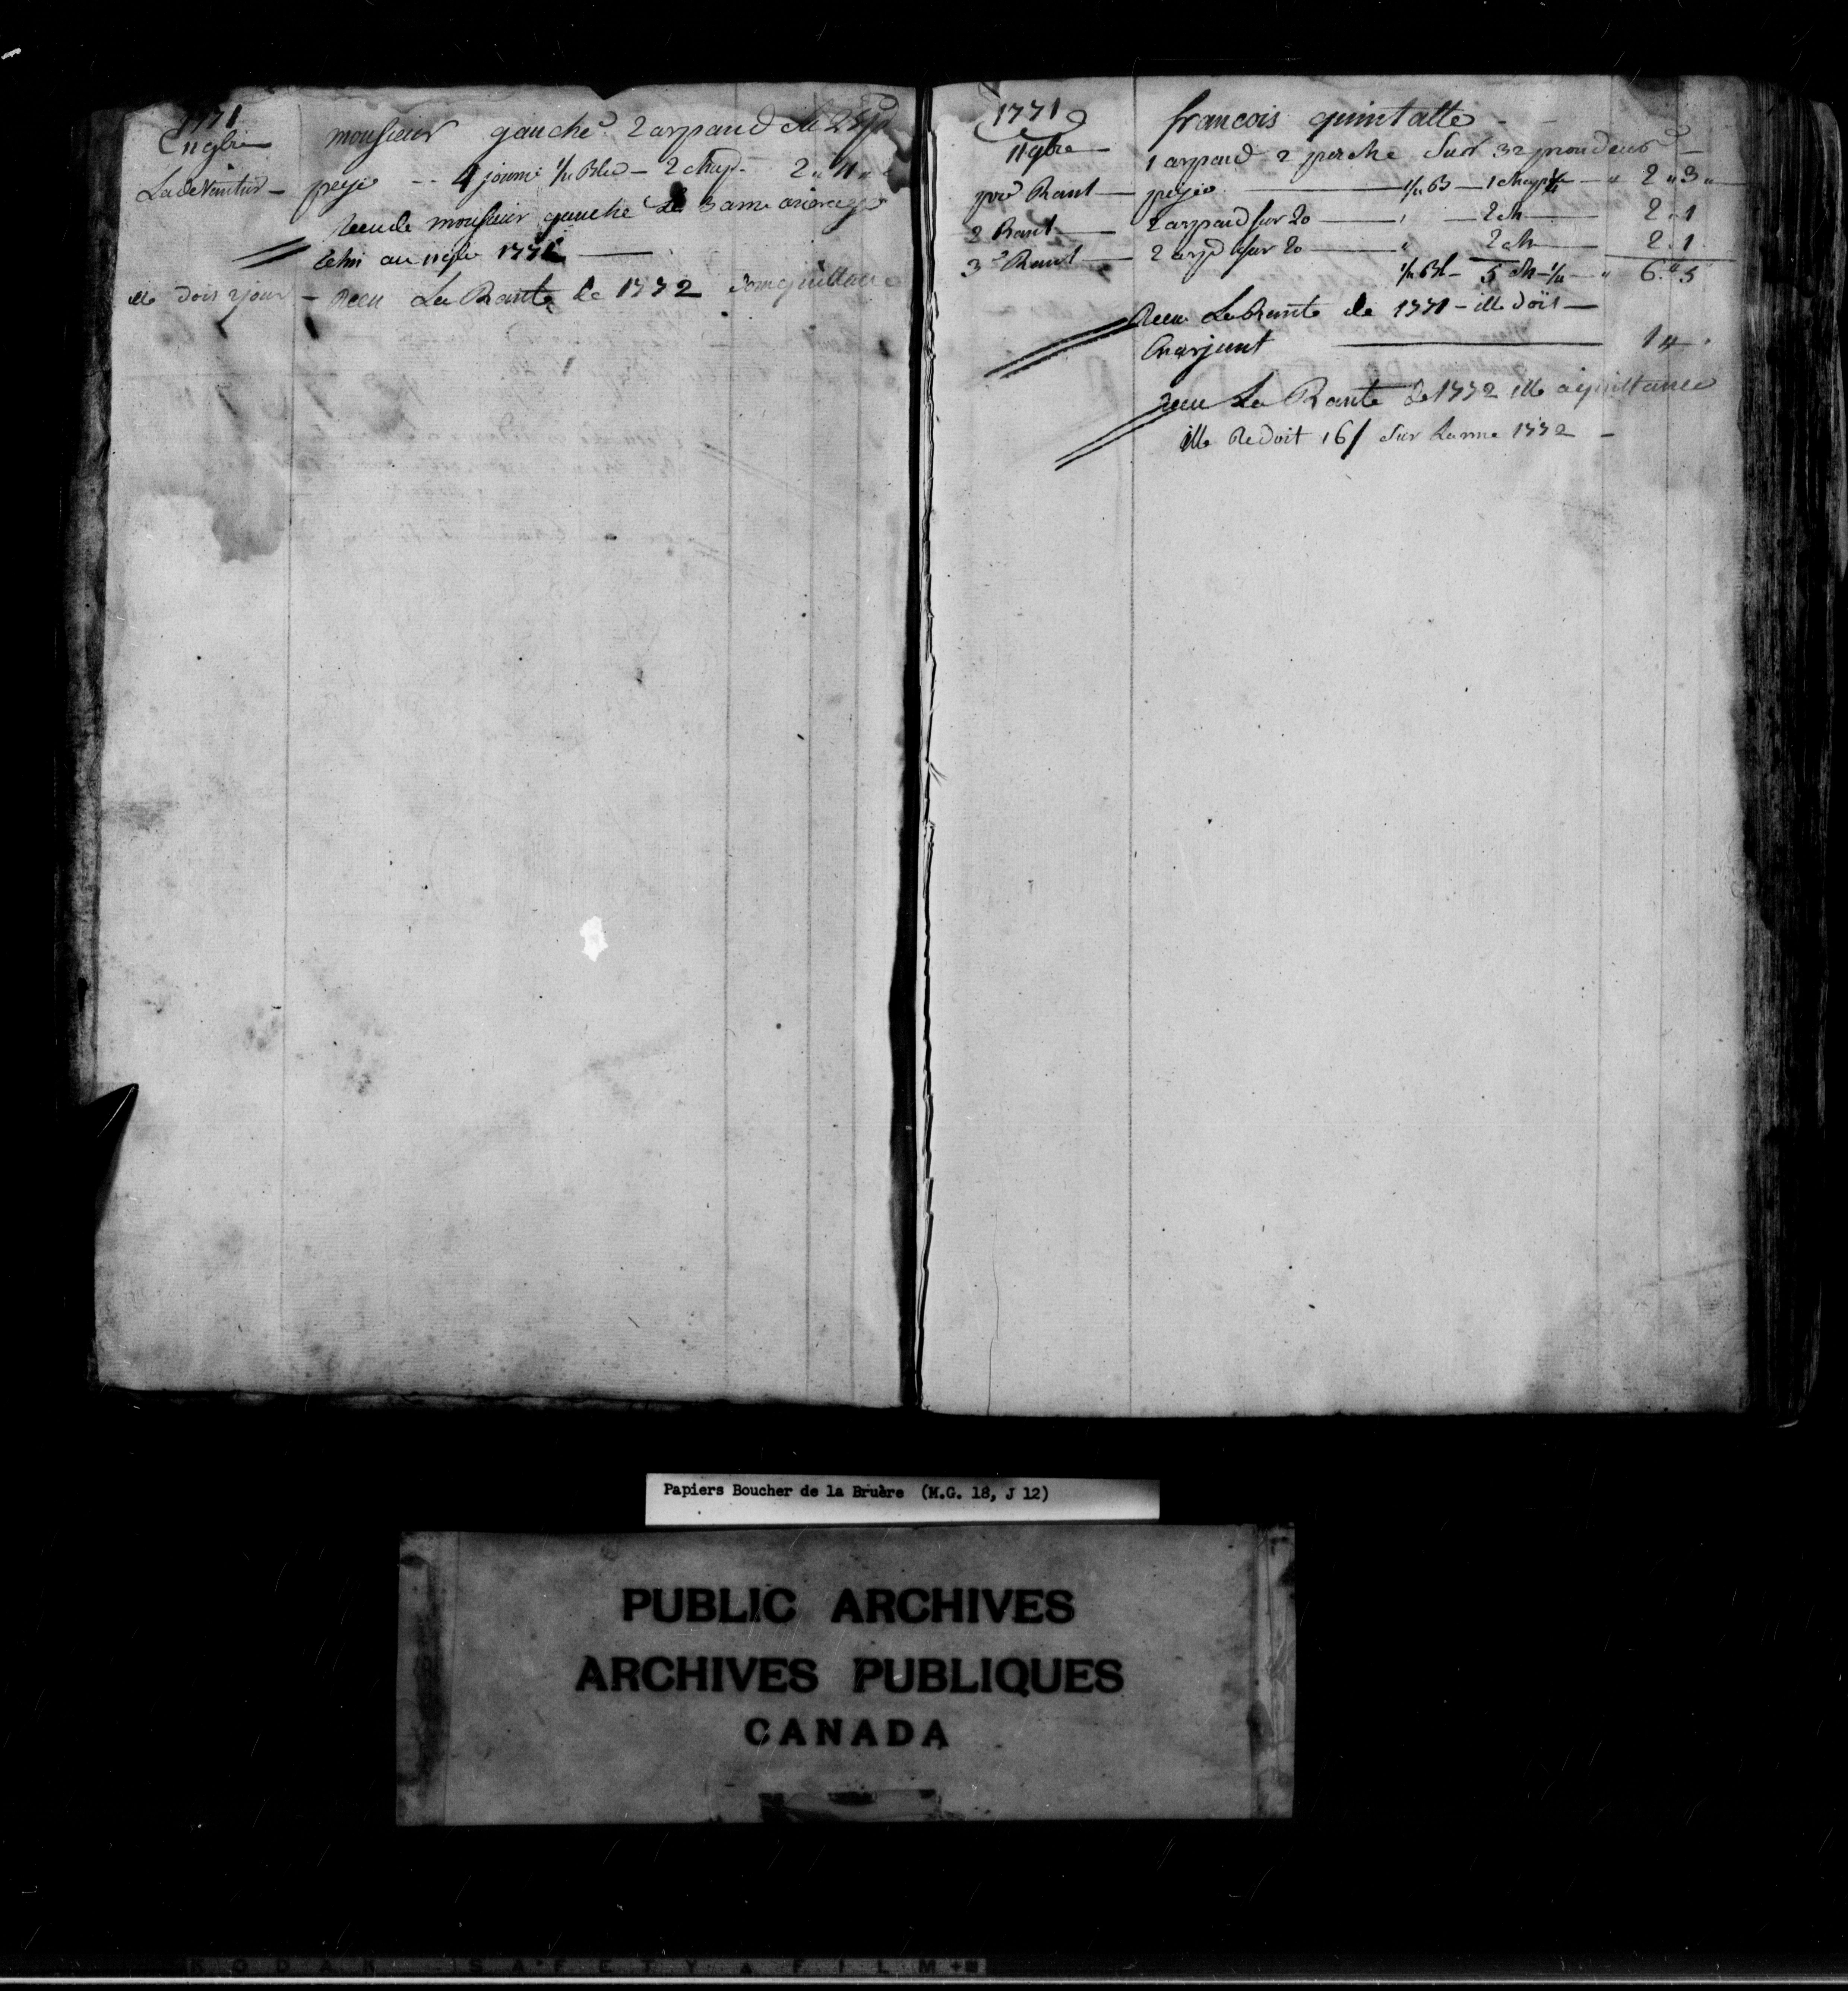 1771
11 gbre
monsieur gauche 2 arpand de 25 pd
Ladeventur — peye -- 4 journé 1/2 Bled — 2 chap. 2 " 11 "
Recu de monsieur gauche Le 3 anne arierages
Echu au 11 gbre 1771 —
ille dois 2 jour — Recu La Rante de 1772 donne quittance
1771
11 gbre —
francois quintalle - -
1 arpand 2 perche Sur 32 prondeur —
pre Rant — peyie — 1/2 B — 1 chap 1/2 — " 2 " 3 "
2 Rant — 2 arpand sur 20 — " — 2 ch — 2 " 1
3e Rant — 2 arpd sur 20 — " 2 ch — 2 " 1
1/2 Bl — 5 ch 1/2 — " 6 " 5
Recu La Rante de 1771 — ille doit —
En arjant — 14
Recu La Rante de 1772 ille a quittance
ille Redoit 16/ Sur Lanne 1772 —
Papiers Boucher de la Bruère (M.G. 18, J 12)
PUBLIC ARCHIVES
ARCHIVES PUBLIQUES
CANADA
KODAK SAFETY FILM